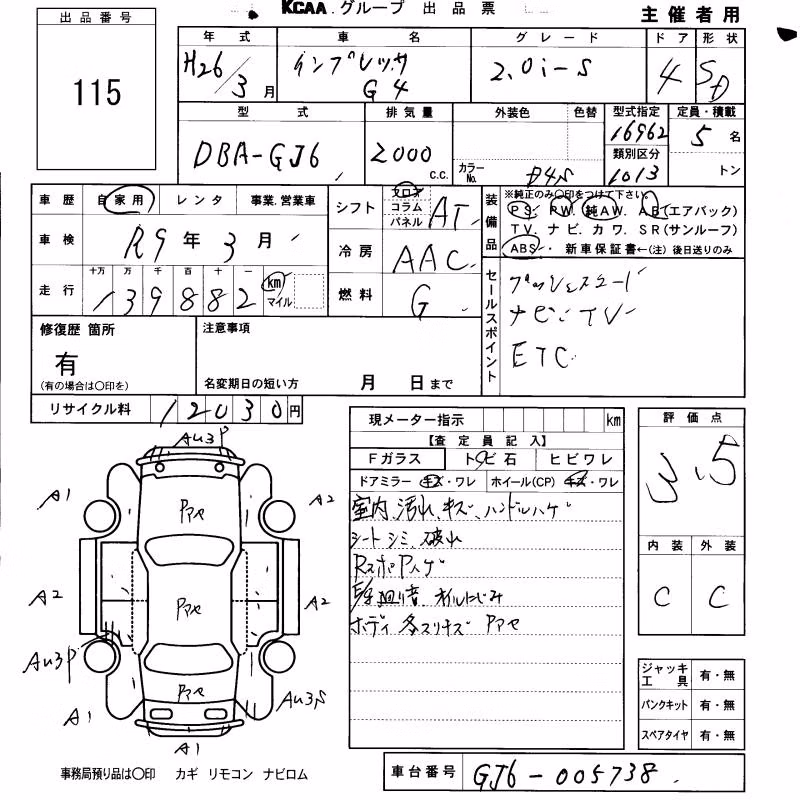 KCAA.グループ 出品票
主催者用
出品番号
115
年式 車名 グレード ドア 形状
H26/3月 インプレッサ G4 2.0i-S 4 SD
型式 排気量 外装色 色替 型式指定 定員・積載
DBA-GJ6 2000 c.c. カラーNo. D4S 16962 5名
類別区分
1013 トン
車歴 自家用 レンタ 事業.営業車
車検 R9年3月
走行 十万 万 千 百 十 一
139882 km マイル
シフト フロア コラム パネル AT
冷房 AAC
燃料 G
装備品
※純正のみ○印をつけて下さい
PS. PW. 純AW. AB(エアバック)
TV. ナビ. カワ. SR(サンルーフ)
ABS. 新車保証書←(注)後日送りのみ
セールスポイント
プッシュスタート
ナビ・TV
ETC
修復歴 箇所
有
(有の場合は○印を)
注意事項
名変期日の短い方 月 日まで
リサイクル料 12030円
現メーター指示 km
【査定員記入】
Fガラス トビ石 ヒビワレ
ドアミラー キズ・ワレ ホイール(CP) キズ・ワレ
室内 汚れ、キズ、ハンドルハゲ
シート シミ 破れ
RスポPハゲ
オイルにじみ
ボディ 各スリキズ Pアセ
評価点
3.5
内装 外装
C C
ジャッキ工具 有・無
パンクキット 有・無
スペアタイヤ 有・無
AU3P
A1 Pアセ A2
A2 Pアセ A2
AU3P Pアセ AU3S
A1
A1
事務局預り品は○印 カギ リモコン ナビロム
車台番号 GJ6-005738